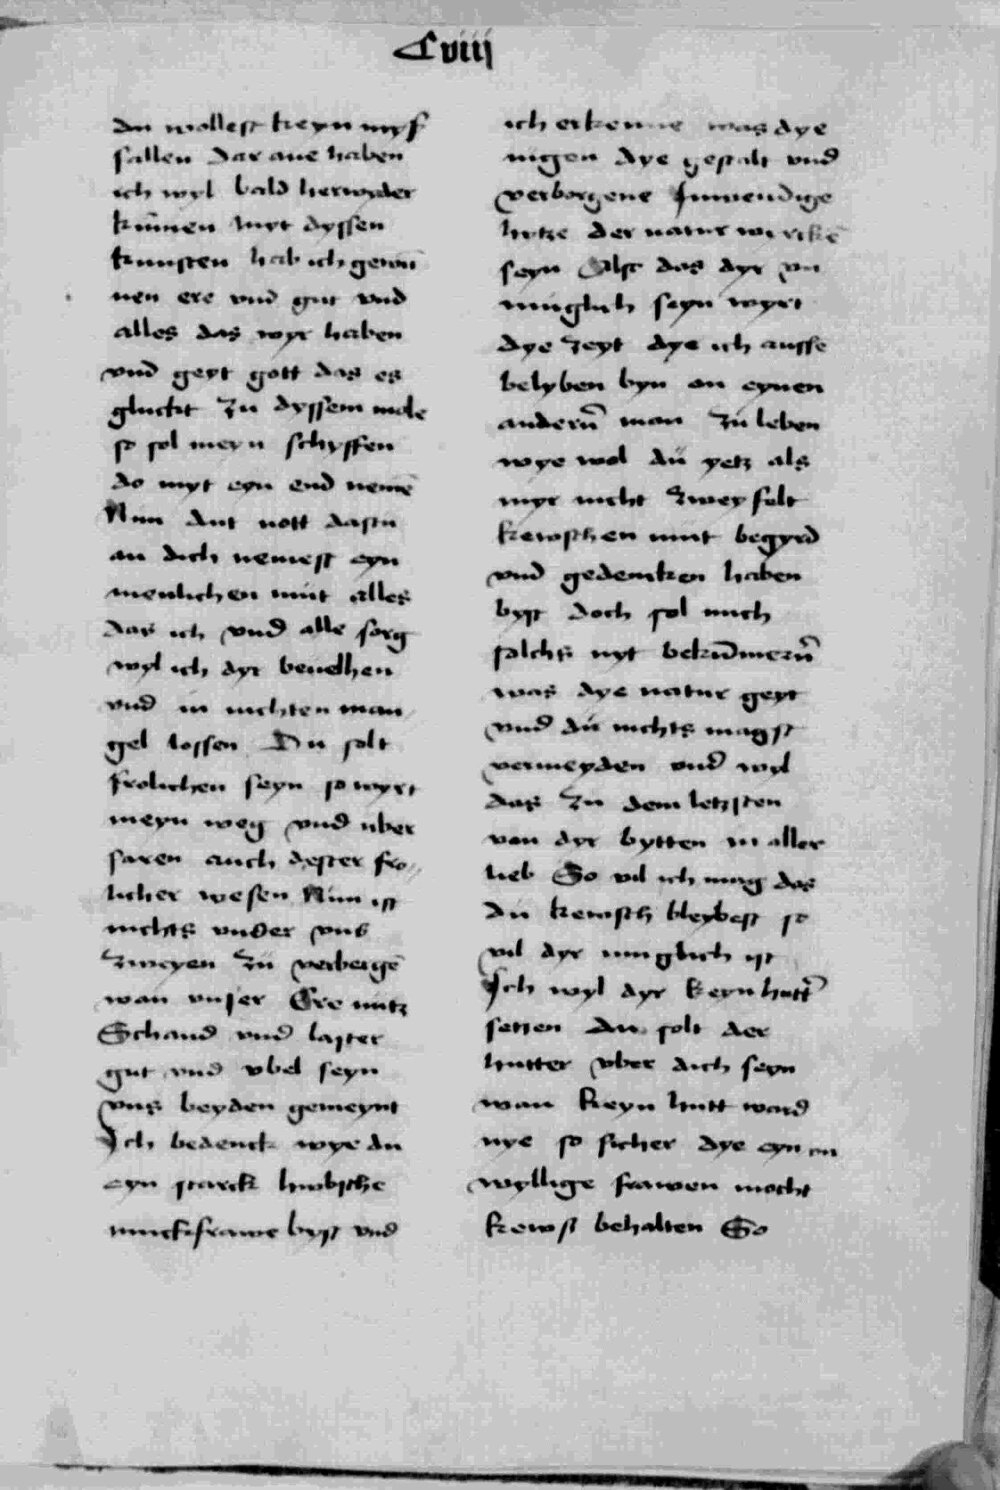 Cviij
du wollest keyn myß
fallen dar ane haben
ich wyl bald herwyder
kumen Myt dyssen
kunsten hab ich gewū
nen ere vnd gut vnd
alles das wyr haben
vnd geyt gott das es
gluckt zu dyssem mole
so sol meyn schyffen
do myt eyn end nemē
Nun dut nott dastu
an dich nemest eyn
menlichen müt alles
das ich vnd alle sorg
wyl ich dyr beuelhen
vnd in nichten man
gel lossen Du solt
frolichen seyn so wyrt
meyn weg vnd vber
faren auch dester fro
licher wesen Nun ist
nichts vnder vns
zweyen zü verbergē
wan vnser Ere nutz
Schand vnd laster
gut vnd vbel seyn
vns beyden gemeynt
Ich bedenck wye du
eyn starck hubsche
iunckfrawe byst vnd
ich erkenne was dye
iugen dye gestalt vnd
verborgene Inwendige
hytze der natur wirckē
seyn Also das dyr vn
müglich seyn wyrt
dye zeyt dye ich ausse
belyben byn on eynen
andern̄ man zü leben
wye wol dü yetz als
myr nicht zweyfelt
kewschen müt begyrd
vnd gedencken haben
byst doch sol mich
solchs nyt bekūmern̄
was dye natur geyt
vnd dü nichts magst
vermeyden vnd wyl
das zu dem letzsten
van dyr bytten in aller
lieb So vil ich mag das
dü kewsch bleybest so
vil dyr muglich ist
Ich wyl dyr keyn hutt̄
setzen Du solt der
hutter vber dich seyn
wan keyn hutt ward
nye so sicher dye eyn on
wyllige frawen mocht
kewsch behalten So